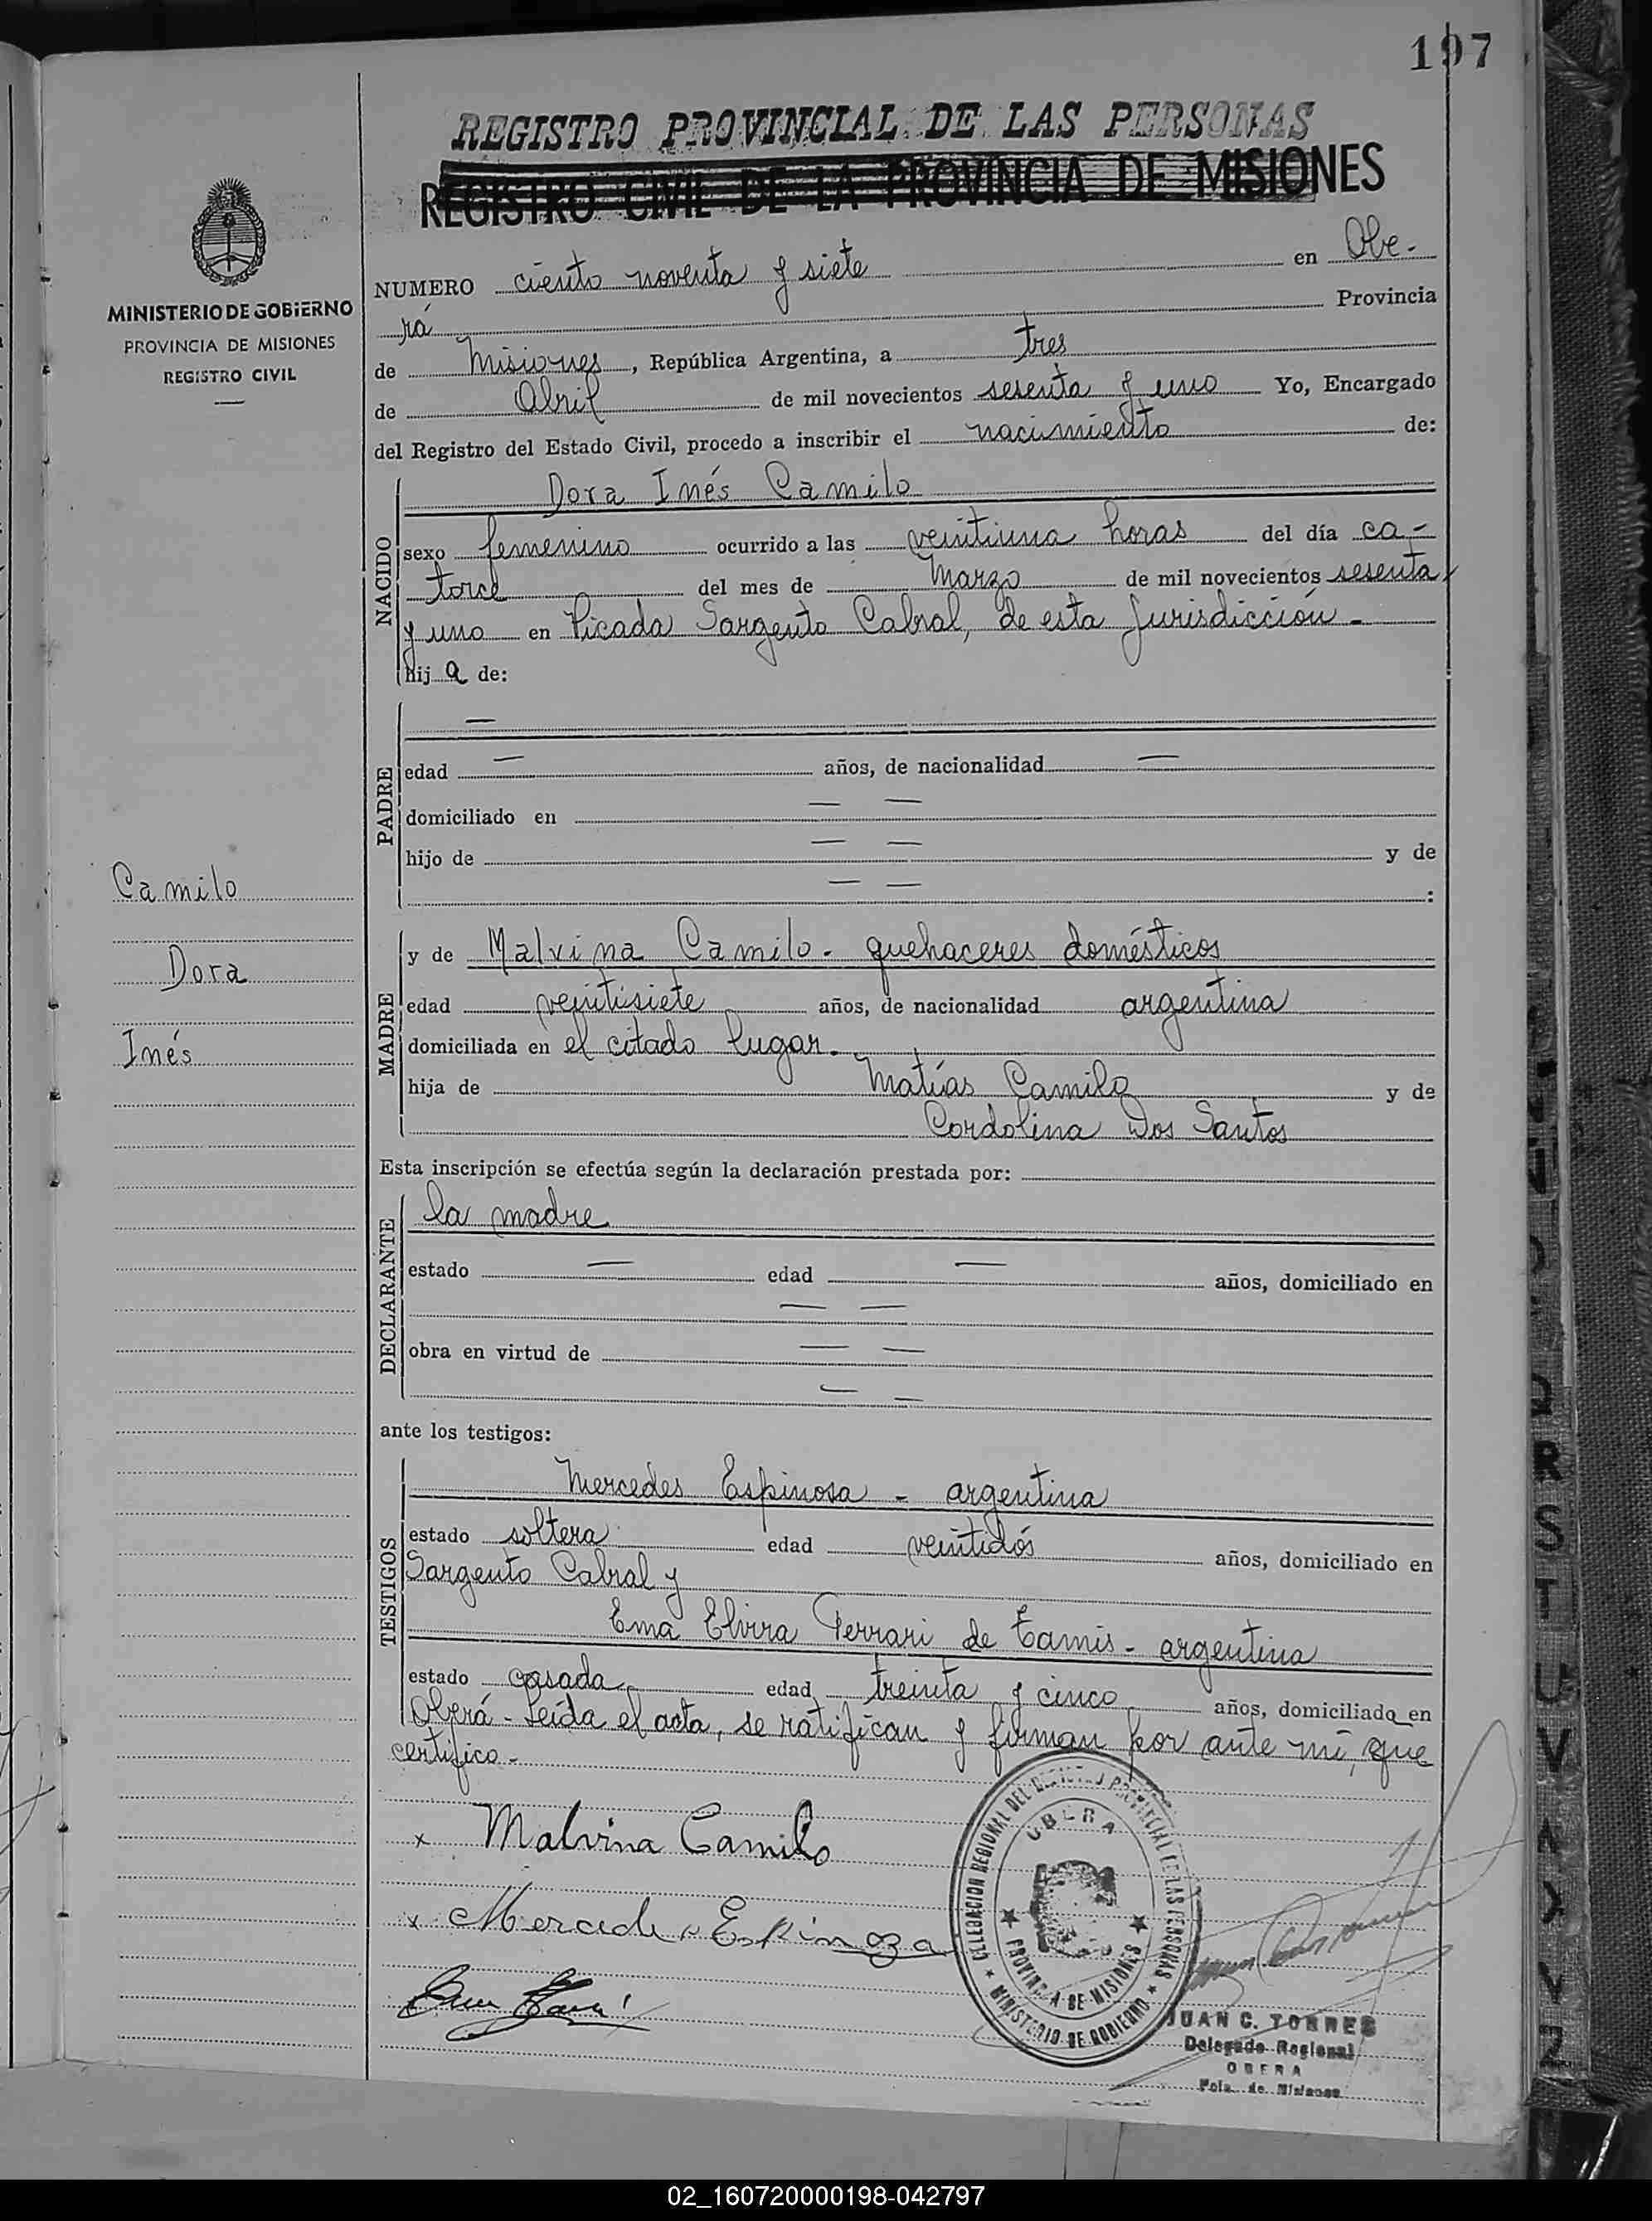 197
REGISTRO PROVINCIAL DE LAS PERSONAS
REGISTRO CIVIL DE LA PROVINCIA DE MISIONES
MINISTERIO DE GOBIERNO
PROVINCIA DE MISIONES
REGISTRO CIVIL
NUMERO ciento noventa y siete en Obe-
rá Provincia
de Misiones, República Argentina, a tres
de Abril de mil novecientos sesenta y uno Yo, Encargado
del Registro del Estado Civil, procedo a inscribir el nacimiento de:
NACIDO
Dora Inés Camilo
sexo femenino ocurrido a las veintiuna horas del día ca-
torce del mes de Marzo de mil novecientos sesenta
y uno en Picada Sargento Cabral, de esta Jurisdicción -
hija de:
PADRE
—
edad — años, de nacionalidad —
domiciliado en — —
hijo de — — y de
— — :
Camilo
Dora
Inés
MADRE
y de Malvina Camilo - quehaceres domésticos
edad veintisiete años, de nacionalidad argentina
domiciliada en el citado lugar.
hija de Matías Camilo y de
Cordolina Dos Santos
Esta inscripción se efectúa según la declaración prestada por:
DECLARANTE
la madre
estado — edad — años, domiciliado en
— —
obra en virtud de — —
— —
ante los testigos:
TESTIGOS
Mercedes Espinosa - argentina
estado soltera edad veintidós años, domiciliado en
Sargento Cabral y
Ema Elvira Ferrari de Tamis - argentina
estado casada edad treinta y cinco años, domiciliada en
Oberá - Leída el acta, se ratifican y firman por ante mí, que
certifico -
x Malvina Camilo
x Mercedes Espinoza
DELEGACION REGIONAL DEL REGISTRO PROVINCIAL DE LAS PERSONAS
OBERA
PROVINCIA DE MISIONES
MINISTERIO DE GOBIERNO
JUAN C. TORRES
Delegado Regional
OBERA
Pcia. de Misiones
R
S
T
U
V
02_160720000198-042797